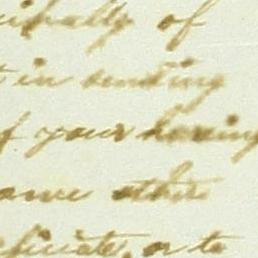 cipally of
t in sending
f your having
ome other
ficiate, or to